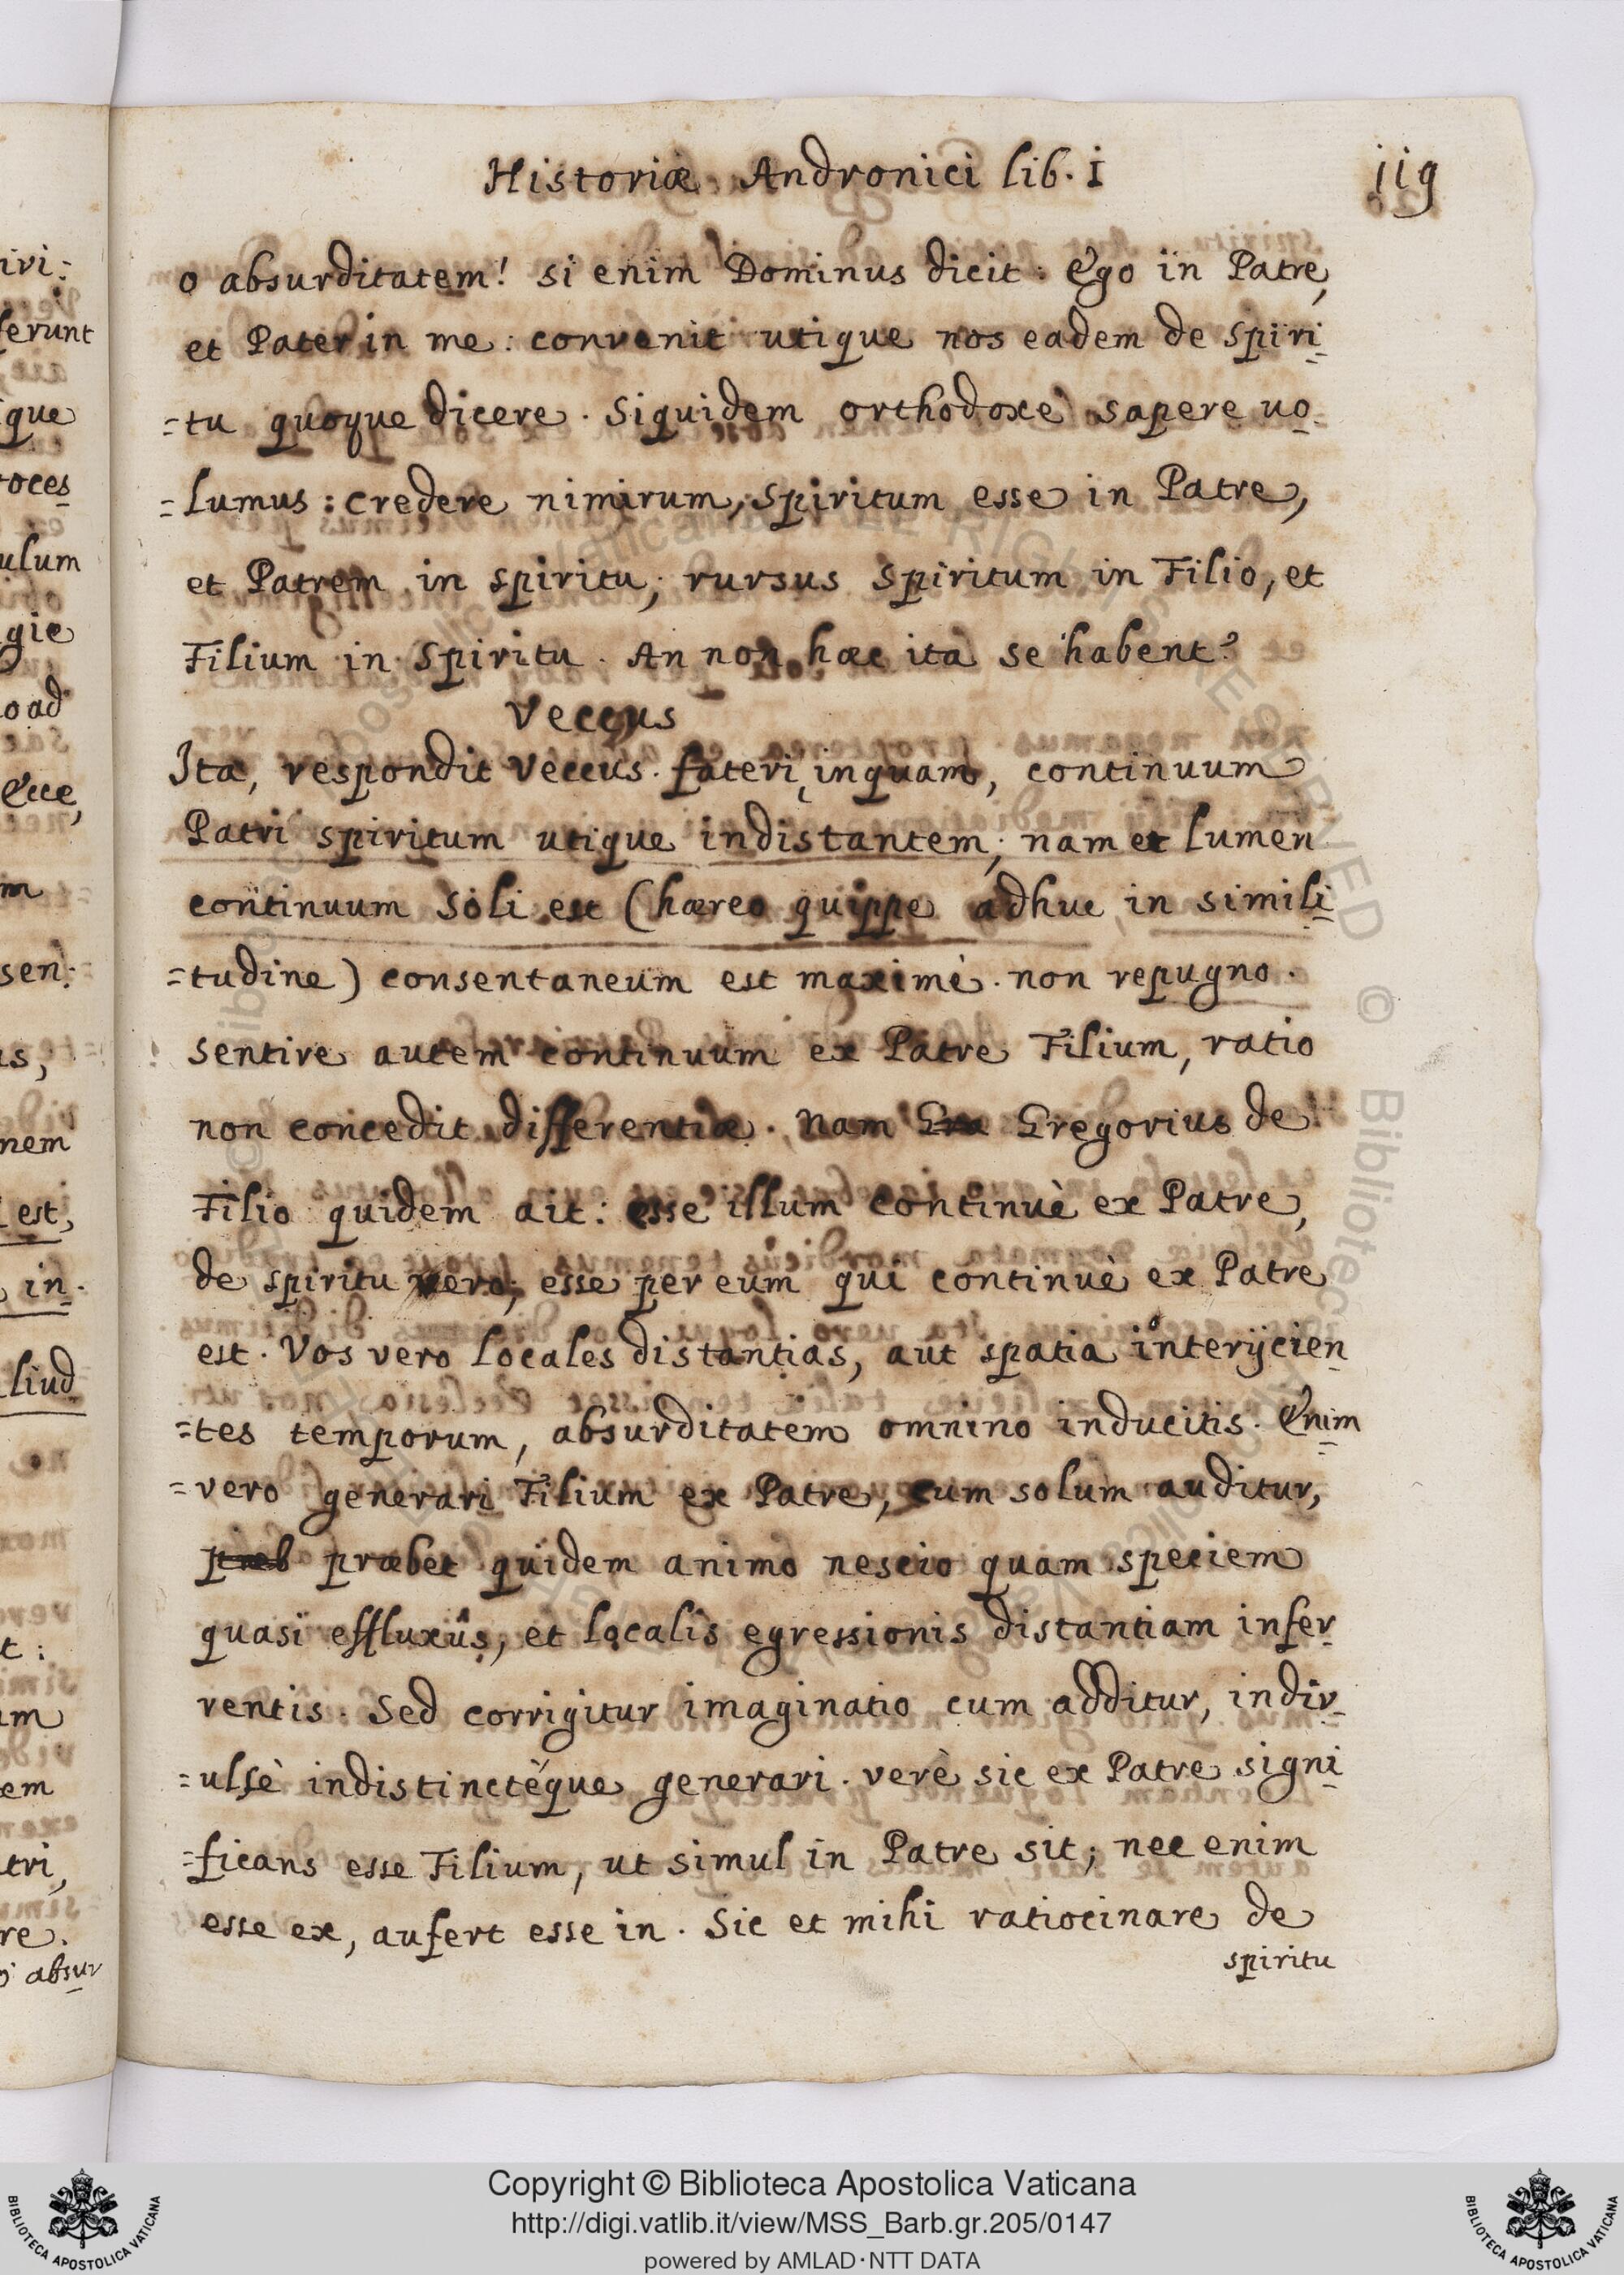 Historiæ Andronici lib. I
119
o absurditatem! si enim Dominus dicit: Ego in Patre,
et Pater in me: convenit utique nos eadem de spiri
=tu quoque dicere. Siquidem orthodoxè sapere uo
=lumus: credere nimirum, spiritum esse in Patre,
et Patrem in spiritu; rursus spiritum in Filio, et
Filium in spiritu. An non hæc ita se habent?
Veccus
Ita, respondit Veccus. fateri, inquam, continuum
Patri spiritum utique indistantem; nam et lumen
continuum soli est (hæreo quippe adhuc in simili
=tudine) consentaneum est maximè. non repugno.
sentire autem continuum ex Patre Filium, ratio
non concedit differentiæ. Nam Gre Gregorius de
Filio quidem ait: esse illum continuè ex Patre,
de spiritu vero, esse per eum qui continuè ex Patre
est. Vos vero locales distantias, aut spatia interijcien
=tes temporum, absurditatem omnino inducitis. Enim
=vero generari Filium ex Patre, cum solum auditur,
præb præbet quidem animo nescio quam speciem
quasi effluxûs, et localis egressionis distantiam infer
rentis. Sed corrigitur imaginatio cum additur, indiv
=ulsè indistinctéque generari. verè sic ex Patre signi
=ficans esse Filium, ut simul in Patre sit; nec enim
esse ex, aufert esse in. Sic et mihi ratiocinare de
spiritu
ivi:
ferunt
que
roces
ulum
gie
o ad
Ecce,
m
sen:
us,
nem
est,
in
liud
t:
um
em
tri,
re.
absur
Copyright © Biblioteca Apostolica Vaticana
http://digi.vatlib.it/view/MSS_Barb.gr.205/0147
powered by AMLAD·NTT DATA
BIBLIOTECA APOSTOLICA VATICANA
BIBLIOTECA APOSTOLICA VATICANA